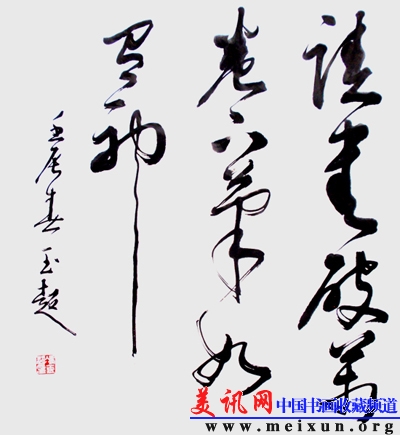 讀書破萬
卷下筆如
有神
壬辰春玉超
美讯网 中国书画收藏频道
www.meixun.org